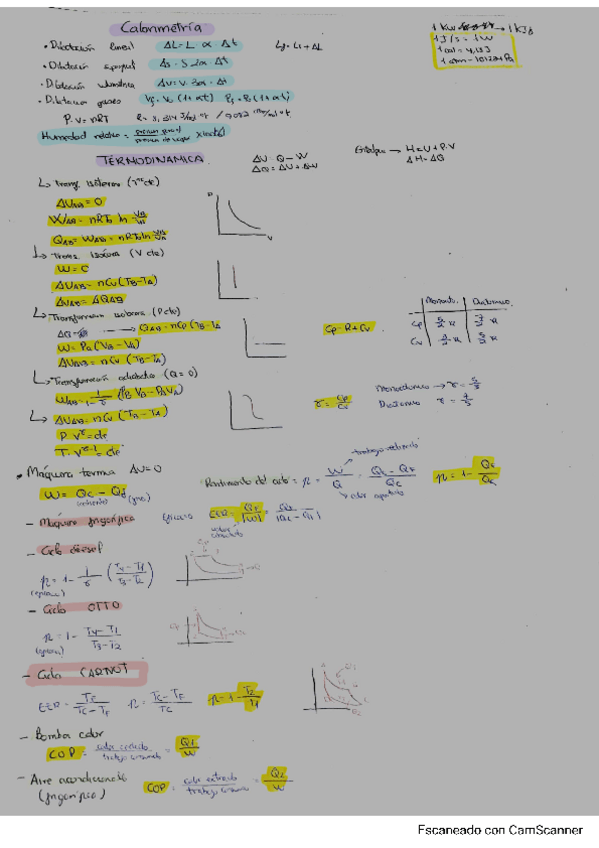 Calorimetría
1 KW 1 KJ/s
1 J/s = 1W
1 cal = 4,18J
1 atm = 101234 Pa
• Dilatación lineal ΔL = L · α · Δt Lf = Li + ΔL
• Dilatación superficial ΔS = S · 2α · Δt
• Dilatación volumétrica ΔV = V · 3α · Δt
• Dilatación gases Vf = V0 (1 + αt) Pf = P0 (1 + αt)
P · V = nRT
Humedad relativa = x 100
TERMODINAMICA
ΔU = Q - W
ΔQ = ΔU + ΔW
Entalpia → H = U + P·V
ΔH = ΔQ
↳ Trans. Isoterma (T cte)
ΔUAB = 0
WAB = nRT0 ln VB/VA
QAB = WAB = nRT0 ln VB/VA
P
V
↳ Trans. Isocora (V cte)
W = 0
ΔUAB = nCv (TB - TA)
ΔUAB = ΔQAB
↳ Transformacion isobara (P cte)
ΔQ → QAB = nCp (TB - TA
W = P0 (VB - VA)
ΔUAB = nCv (TB - TA)
Cp = R + Cv
Monoato. Diatomico
Cp 5/2 R 7/2 R
Cv 3/2 R 5/2 R
↳ Transformación adiabatica (Q = 0)
WAB = 1/1-γ (PB VB - PAVA)
↳ ΔUAB = nCv (TB - TA)
P · V^γ = cte
T · V^γ-1 = cte
γ = Cp/Cv
Monoatomico → γ = 5/3
Diatomico γ = 7/5
• Máquina termica ΔU = 0
W = QC - Qf
Rendimiento del ciclo = η = W/Q = QC - QF/QC
trabajo realizado
calor aportado
η = 1 - Qf/Qc
- Maquina frigorífica
Eficacia EER = QF/|W| = QF/|QC - QF|
- Ciclo diesel
η = 1 - 1/γ (T4 - T1/T3 - T2)
- Ciclo OTTO
η = 1 - T4 - T1/T3 - T2
- Ciclo CARNOT
EER = TF/TC - TF η = TC - TF/TC η = 1 - T2/T1
- Bomba calor
COP = calor cedido/trabajo consumido = Q1/W
- Aire acondicionado
(frigorífico)
COP = calor extraido/trabajo consumido = Q2/W
Escaneado con CamScanner